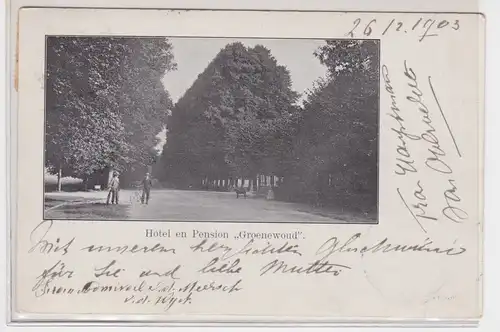 26 12. 1903
Frau Hauptman
Hotel en Pension „Groenewoud".
Mit unserem herzlichsten Glückwünsche
für Sie und liebe Mutter
Admiraal v. d. Meersch
v. d. Wyck